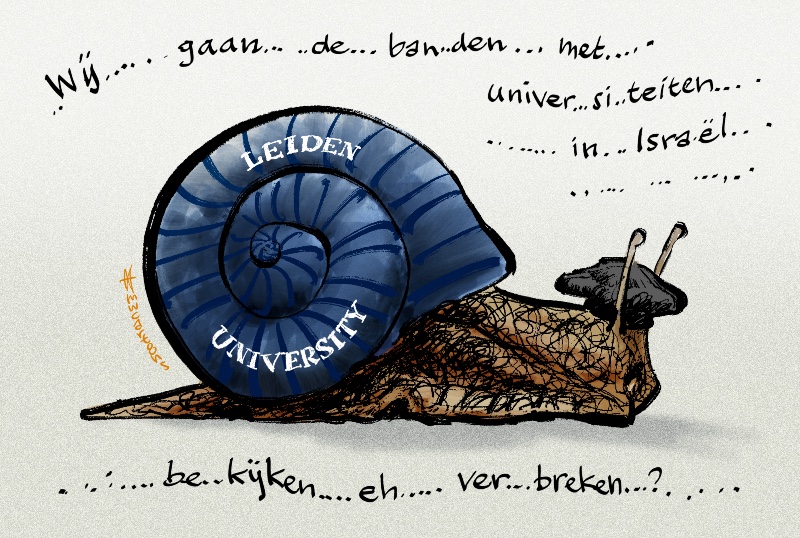 Wij..... . gaan... ..de... ban..den ... met....  .
univer...si..teiten... .
. ...... in... Israël.. .
LEIDEN
UNIVERSITY
. ..:.... be..kijken.... eh..... ver...breken...?. . . .